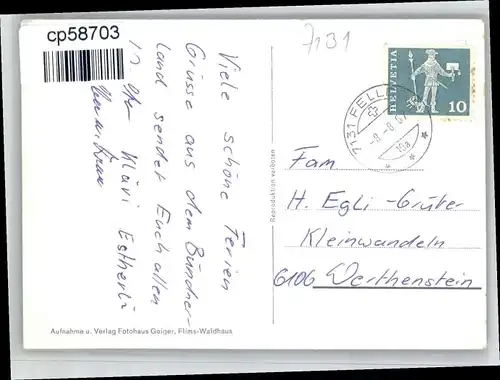 cp58703
7131
HELVETIA
10
7131 FELL
-9.-8.67
10a
Viele schöne Ferien
Grüsse aus dem Bündner-
Land sendet Euch allen
Klävi Estherli
Fam
H. Egli-Grüter
Kleinwandeln
6106 Werthenstein
Reproduktion verboten
Aufnahme u. Verlag Fotohaus Geiger, Flims-Waldhaus